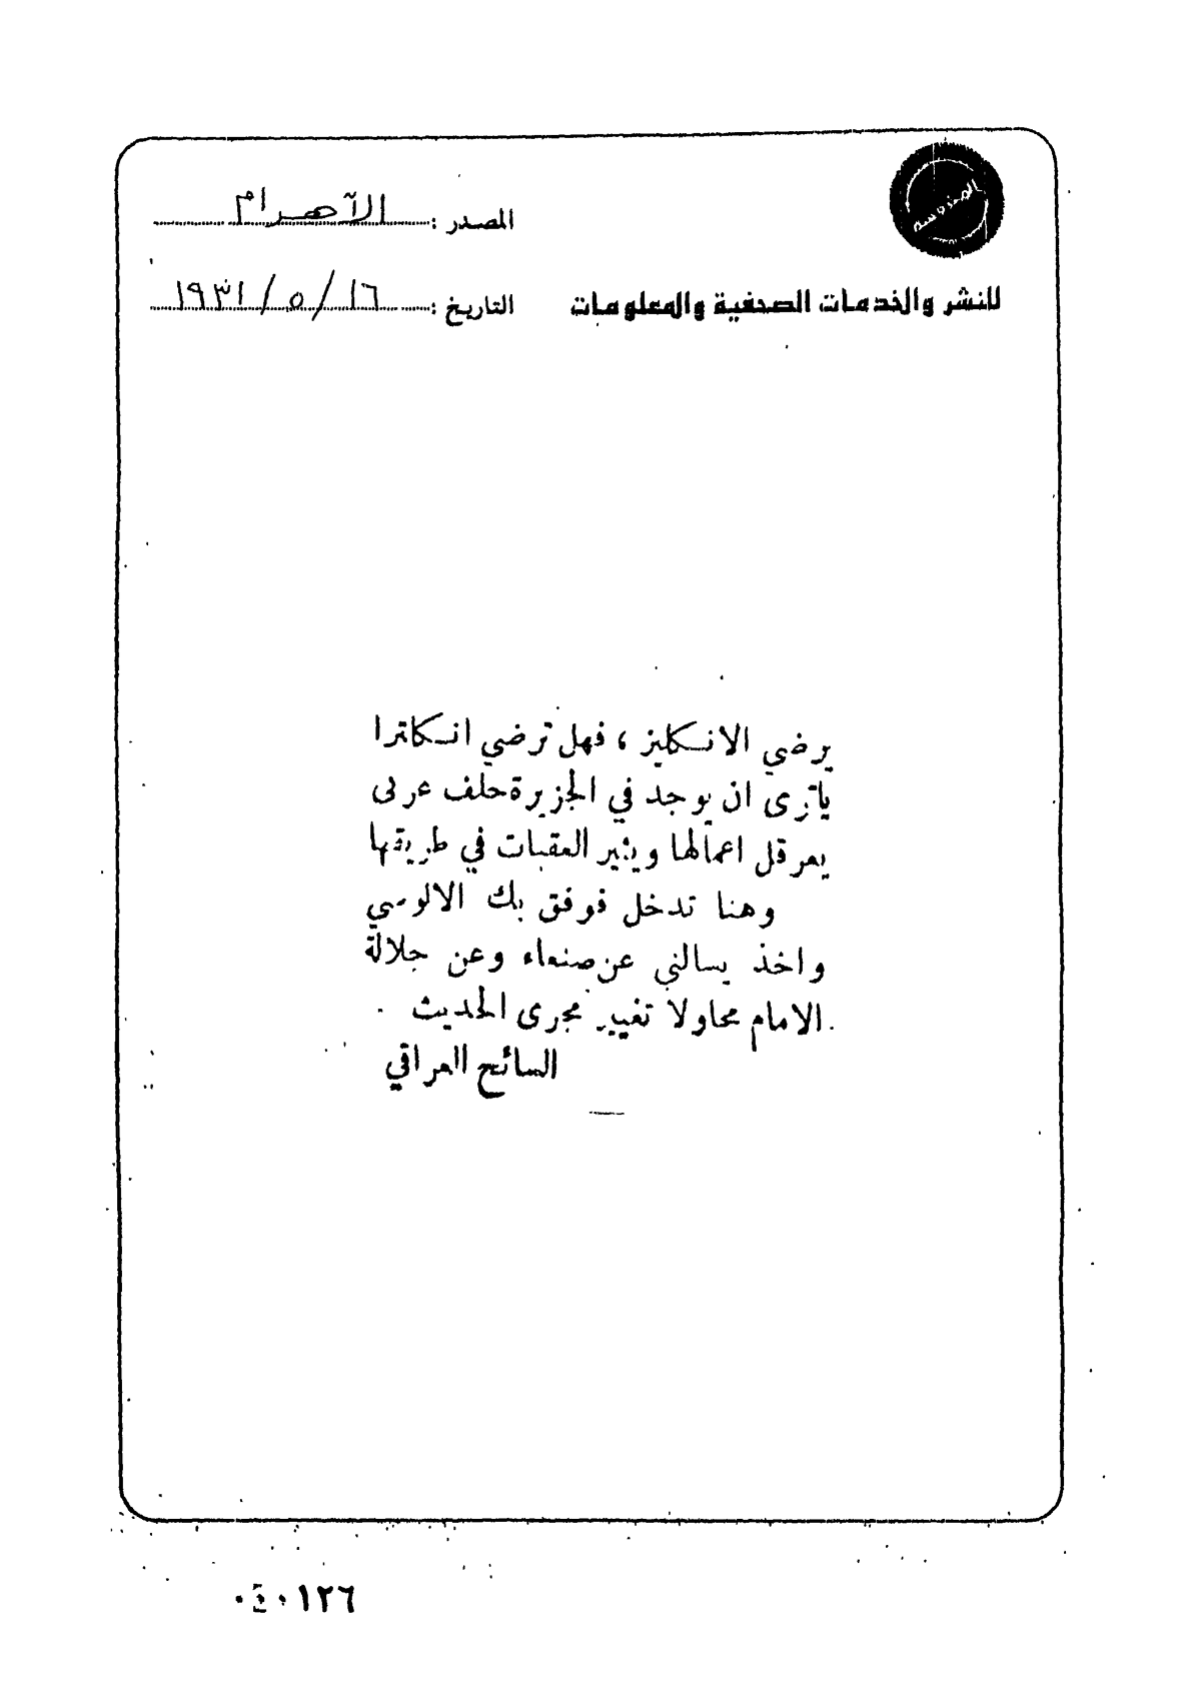 المصدر : الآهرام
التاريخ : ١٦/٥/١٩٣١
للنشر والخدمات الصحفية والمعلومات
يرضي الانكليز ، فهل ترضي انكلترا
ياترى ان يوجد في الجزيرة حلف عربي
يعرقل اعمالها ويثير العقبات في طريقها
وهنا تدخل فوفق بك الالوسي
واخذ يسالني عن صنعاء وعن جلالة
الامام محاولا تغيير مجرى الحديث .
السائح العراقي
١٢٦